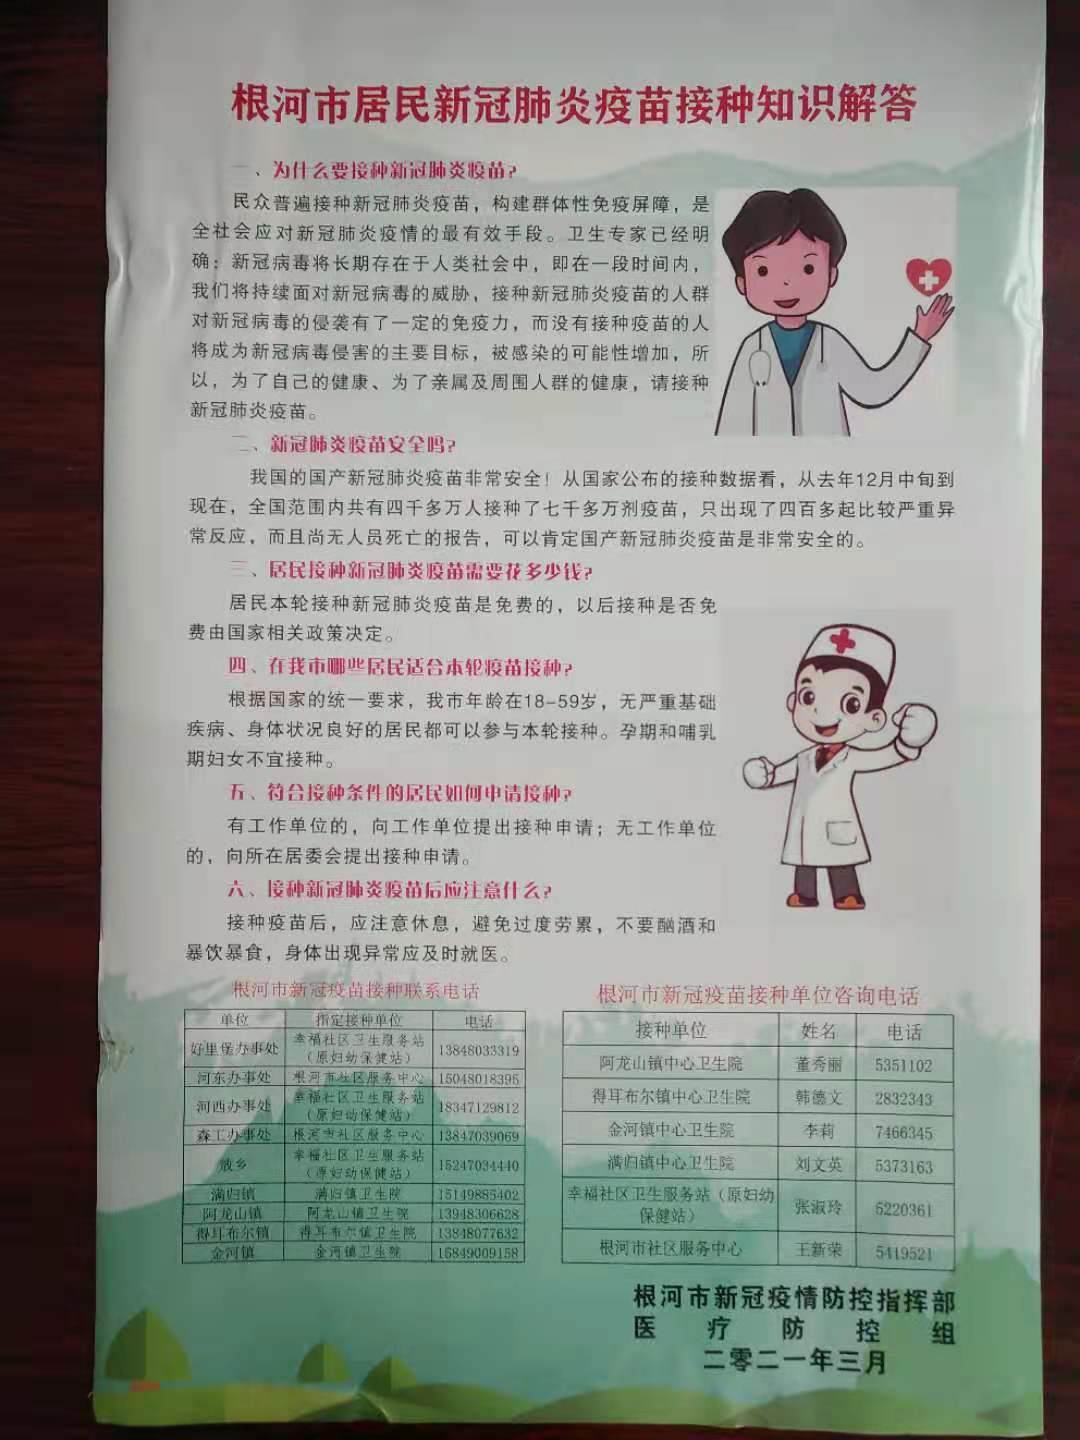 根河市居民新冠肺炎疫苗接种知识解答
一、为什么要接种新冠肺炎疫苗?
民众普遍接种新冠肺炎疫苗，构建群体性免疫屏障，是
全社会应对新冠肺炎疫情的最有效手段。卫生专家已经明
确：新冠病毒将长期存在于人类社会中，即在一段时间内，
我们将持续面对新冠病毒的威胁，接种新冠肺炎疫苗的人群
对新冠病毒的侵袭有了一定的免疫力，而没有接种疫苗的人
将成为新冠病毒侵害的主要目标，被感染的可能性增加，所
以，为了自己的健康、为了亲属及周围人群的健康，请接种
新冠肺炎疫苗。
二、新冠肺炎疫苗安全吗?
我国的国产新冠肺炎疫苗非常安全！从国家公布的接种数据看，从去年12月中旬到
现在，全国范围内共有四千多万人接种了七千多万剂疫苗，只出现了四百多起比较严重异
常反应，而且尚无人员死亡的报告，可以肯定国产新冠肺炎疫苗是非常安全的。
三、居民接种新冠肺炎疫苗需要花多少钱?
居民本轮接种新冠肺炎疫苗是免费的，以后接种是否免
费由国家相关政策决定。
四、在我市哪些居民适合本轮疫苗接种?
根据国家的统一要求，我市年龄在18-59岁，无严重基础
疾病、身体状况良好的居民都可以参与本轮接种。孕期和哺乳
期妇女不宜接种。
五、符合接种条件的居民如何申请接种?
有工作单位的，向工作单位提出接种申请；无工作单位
的，向所在居委会提出接种申请。
六、接种新冠肺炎疫苗后应注意什么?
接种疫苗后，应注意休息，避免过度劳累，不要酗酒和
暴饮暴食，身体出现异常应及时就医。
根河市新冠疫苗接种联系电话
单位 指定接种单位 电话
好里堡办事处 幸福社区卫生服务站（原妇幼保健站） 13848033319
河东办事处 根河市社区服务中心 15048018395
河西办事处 幸福社区卫生服务站（原妇幼保健站） 18347129812
森工办事处 根河市社区服务中心 13847039069
敖乡 幸福社区卫生服务站（原妇幼保健站） 15247034440
满归镇 满归镇卫生院 15149885402
阿龙山镇 阿龙山镇卫生院 13948306628
得耳布尔镇 得耳布尔镇卫生院 13848077632
金河镇 金河镇卫生院 15849009158
根河市新冠疫苗接种单位咨询电话
接种单位 姓名 电话
阿龙山镇中心卫生院 董秀丽 5351102
得耳布尔镇中心卫生院 韩德文 2832343
金河镇中心卫生院 李莉 7466345
满归镇中心卫生院 刘文英 5373163
幸福社区卫生服务站（原妇幼保健站） 张淑玲 5220361
根河市社区服务中心 王新荣 5419521
根河市新冠疫情防控指挥部
医疗防控组
二零二一年三月